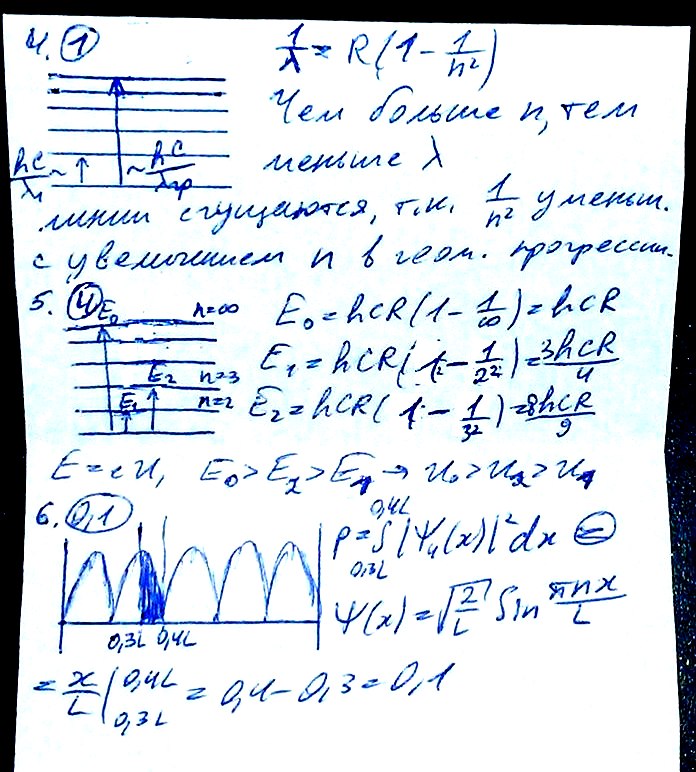 4. 1
1/λ = R(1 - 1/n²)
Чем больше n, тем
меньше λ
hc/λ₁ ~
~ hc/λгр
линии сгущаются, т.к. 1/n² уменьш.
с увеличением n в геом. прогрессии.
5. 4
E₀ n=∞
E₂ n=3
E₁ n=2
E₀ = hCR(1 - 1/∞) = hCR
E₁ = hCR(1 - 1/2²) = 3hCR/4
E₂ = hCR(1 - 1/3²) = 8hCR/9
E = eU, E₀ > E₂ > E₁ → U₀ > U₂ > U₁
6. 0,1
0,3L 0,4L
P = ∫_{0,3L}^{0,4L} |Ψ₄(x)|² dx =
Ψ(x) = √(2/L) Sin πnx/L
= x/L |_{0,3L}^{0,4L} = 0,4 - 0,3 = 0,1